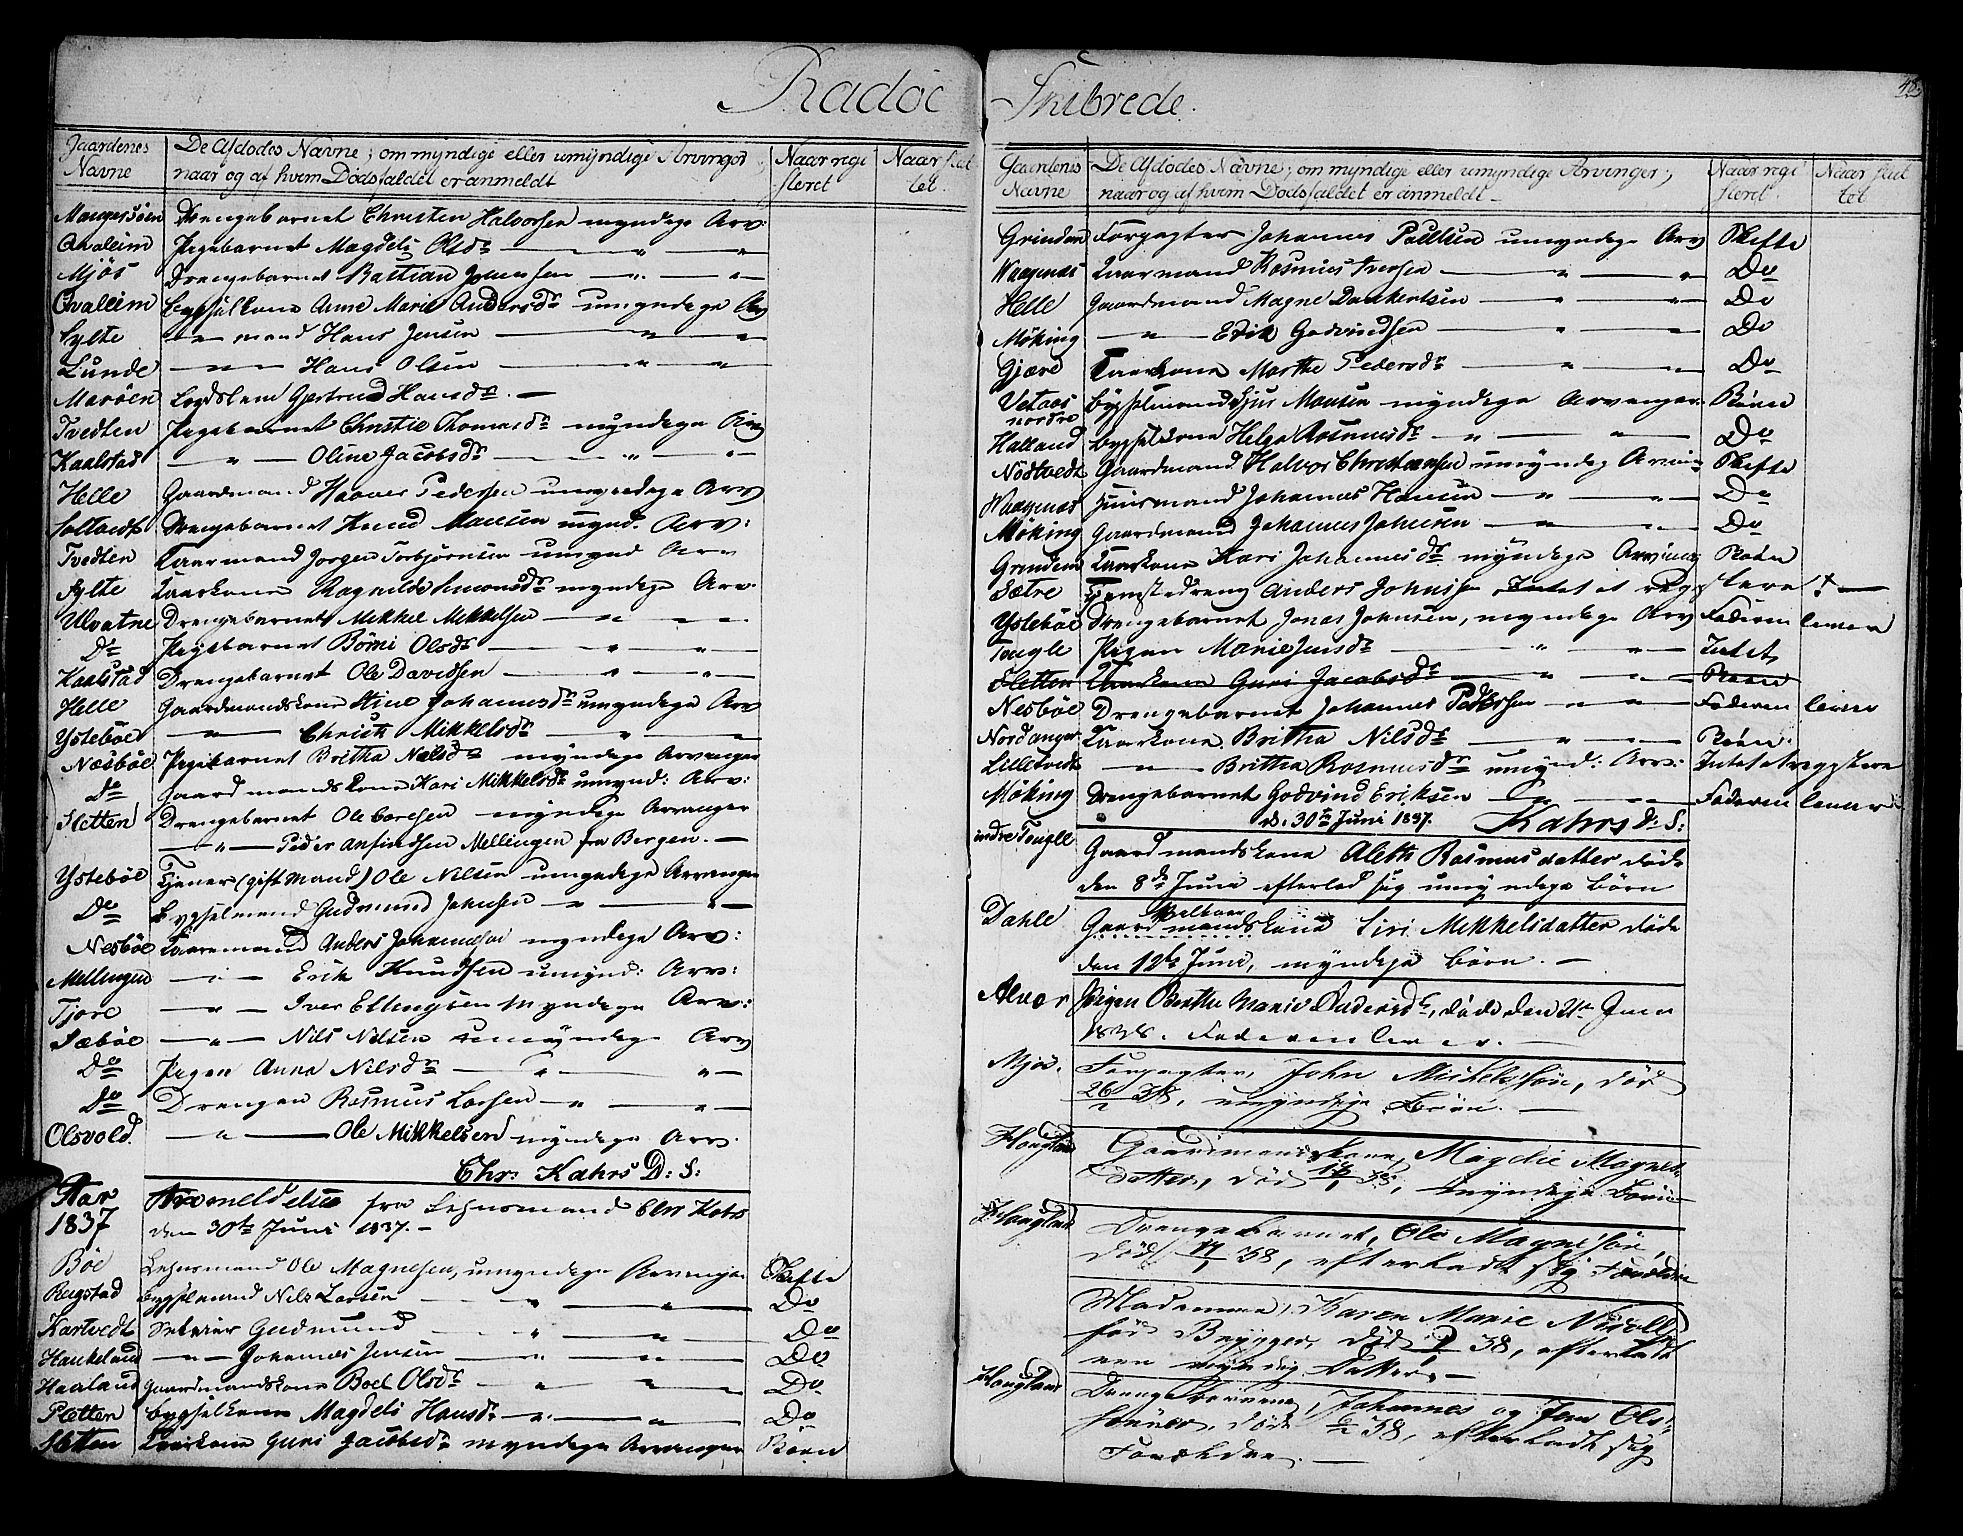 Radöe Skibrede.
48.
Gaardenes Navne
De Afdødes Navne; om myndige eller umyndige Arvinger;
naar og af hvem Dödsfaldet er anmeldt
Naar regi
steret
Naar slut
tet.
Mangersöen Drengebarnet Christen Halvorsen myndige Arv:
Qvaleim Pigebarnet Magdeli Olsdr — " — "
Mjös Drengebarnet Bastian Jensen — " — " —
Qvaleim bygselkone Anne Marie Andersdr umyndige Arv
Sylte — " — mand Hans Jensen — " — "
Lunde — " — Hans Olsen — " — "
Maröen Logdslem Gjertrud Hansdr. —
Tvedten Pigebarnet Christie Thomasdr myndige Arv
Kaalstad — " — Oline Jacobsdr — " — " —
Helle Gaardmand Haaver Pedersen umyndige Arv
Drengebarnet Knud Monsen mynd. Arv:
Tvedten Kaarmand Jørgen Torbjørnsen umynd Arv
Sylte Kaarkone Ragnilde Simonsdr myndige Arv.
Ulvatne Drengebarnet Mikkel Mikkelsen — " — "
Do Pigebarnet Börni Olsdr — " — "
Kaalstad Drengebarnet Ole Davidsen — " — " —
Helle Gaardmandskone Stine Johannesdr umyndige Arv
Ystebøe — " — Christi Mikkelsdr — " — "
Næsbøe Pigebarnet Britha Nilsdr myndige Arvinger
Do Gaardmandskone Kari Mikkelsdr umynd: Arv:
Sletten Drengebarnet Ole myndige Arvinger
— " — Peder Anfindsen Mellingen fra Bergen. —
Ystebøe Tjener (gift Mand) Ole Nilsen umyndige Arvinger
Do Bygselmand Gudmund Johnsen — " — " —
Nesbøe Kaarmand Anders Johannessen myndige Arv:
Mellingen — " — Erik Knudsen umynd: Arv:
Tjore — " — Iver Ellingsen myndige Arv:
Sæbøe — " — Nils Nilsen umyndige Arv
Do Pigen Anna Nilsdr — " — " —
Do Drengen Rasmus Larsen — " — " —
Olsvold. — " — Ole Mikkelsen myndige Arv.
Chr: Kahrs D: S:
Aar 1837 Anmeldelse fra Lehnsmand Chr Kahrs
den 30te Juni 1837. —
Böe Lehnsmand Ole Magnesen, umyndige Arvinger Skifte
Rugstad bygselmand Nils Larsen — " — " — Do
Kartvedt Gudmund — " — " — Do
Haukeland — " — Johannes Jensen — " — " — Do
Haaland Gaardmandskone Boel Olsdr — " — " — Do
Sletten bygselkone Magdeli Hansdr — " — " — Do
Sletten Kaarkone Guri Jacobsdr myndige Arvinger Börn
Gaardenes Navne
De Afdødes Nävne; om myndige eller umyndige Arvinger;
naar og af hvem Dödsfaldet er anmeldt —
Naar regi
steret.
Naar slut
tet
Grinden Forpagter Johannes Poulsen umyndige Arv Skifte
Waagenes Kaarmand Rasmus Iversen — " — " Do
Helle Gaardmand Magne Dankertsen — " — " Do
Möking — " — Erik Godvindsen — " — " Do
Gjære Kaarkone Marthe Pedersdr — " — " Do
Vetaas nordre bygselmand Sjur Monsen myndige Arvinger Börn
Halland bygselkone Helga Rasmusdr — " — " — Do
Nödtvedt Gaardmand Halvor Christensen umyndig Arving Skifte
Waagenes Huusmand Johannes Hansen — " — " — Do
Möking Gaardmand Johannes Johnsen — " — " — Do
Grinden Kaarkone Kari Johannesdr myndige Arving Börn
Sætre Tjenstedreng Anders Johnsen Intet at registere
Ystebøe Drengebarnet Jonas Johnsen, myndige Arv Faderen lever
Tougle Pigen Marie Jensdr — " — " — Intet
Sletten Kaarkone Guri Jacobsdr — " — " — Börn
Nesbøe Drengebarnet Johannes Pedersen — " — " — Faderen lever
Nordanger Kaarkone Britha Nilsdr — " — " — Börn.
Lilletvedt — " — Britha Rasmusdr umynd: Arv: Intet at registere
Möking Drengebarnet Godvind Eriksen — " — " — Faderen lever
d. 30te Juni 1837. Kahrs D: S:
indre Tougle Gaardmandskone Aleth Rasmusdatter døde
den 8de Juni efterlod sig umyndige Börn
Dahle Gaardmandskone Siri Mekkelsdatter døde
den 12te Juni, myndige Börn. —
Alver Pigen Berthe Marie Andersdr, døde den 21de Juni
1838. Faderen lever. —
Mjös. Forpagter, John Mickelsön, död
26/ 38, umyndige Börn. —
Hougland Gaardmandskone, Magdli Magnes-
datter, död 38, myndige Börn —
Hougland Drengebarnet, Ole Magnesön,
död 38, efterladt sig Forældre
Madamme, Karen Marie
född Brygger, död 38, efterladt
een myndig Datter. —
Hougland Drengebørnene, Johannes og Jens Ols-
sönner, döde 38, efterladt sig
Forældre. —